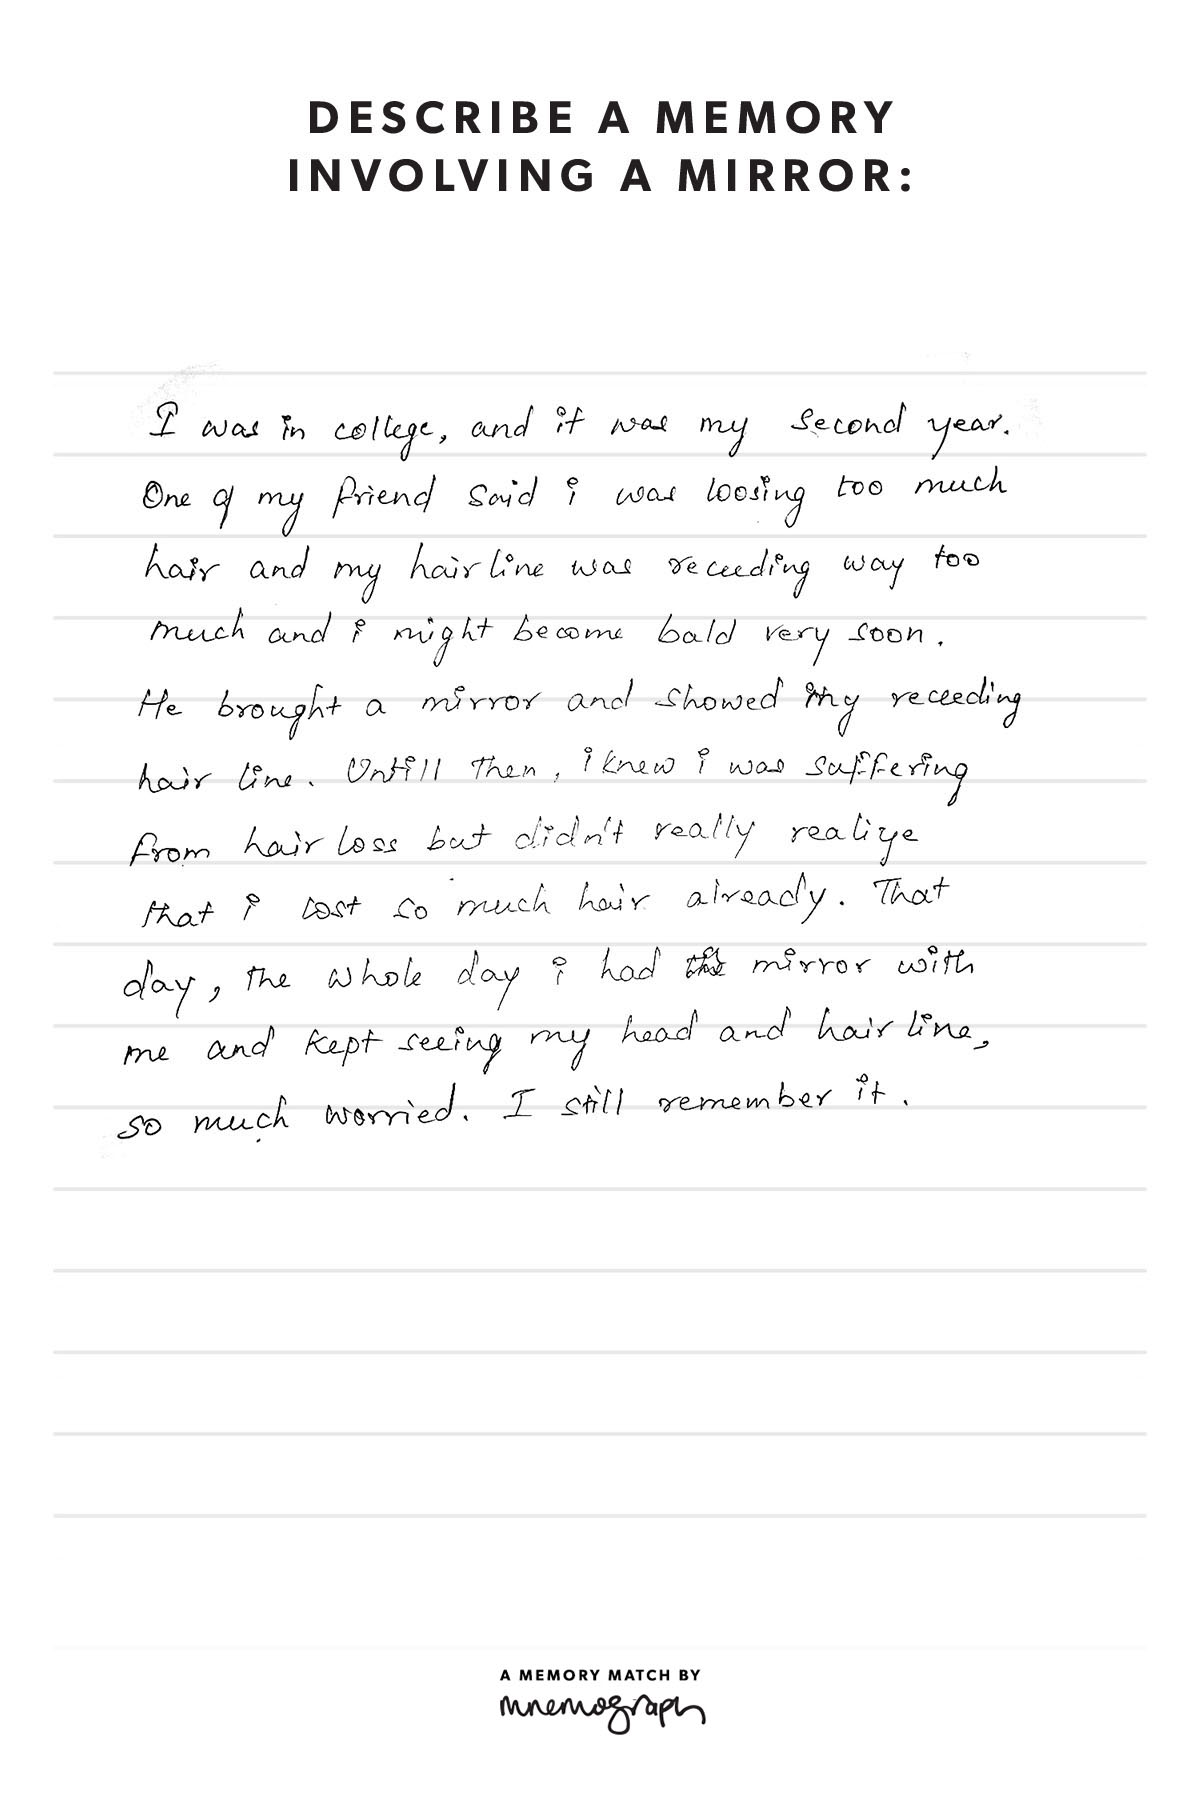 DESCRIBE A MEMORY
INVOLVING A MIRROR:
I was in college, and it was my second year.
One of my friend said i was loosing too much
hair and my hairline was receeding way too
much and i might become bald very soon.
He brought a mirror and showed my receeding
hair line. Untill then, i knew i was suffering
from hair loss but didn't really realize
that i lost so much hair already. That
day, the whole day i had the mirror with
me and kept seeing my head and hair line,
so much worried. I still remember it.
A MEMORY MATCH BY
mnemograph